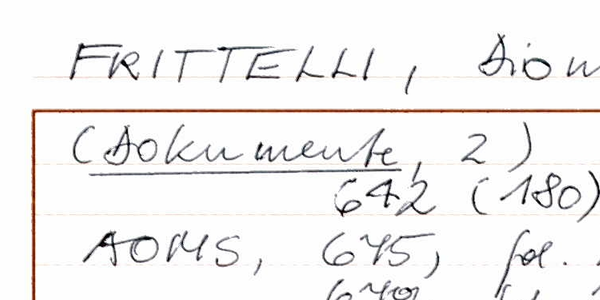 FRITTELLI,
(Dokumente, 2)
642 (180)
AOMS, 645, fol.